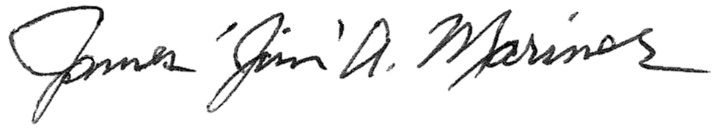 James 'Jim' A. Marines